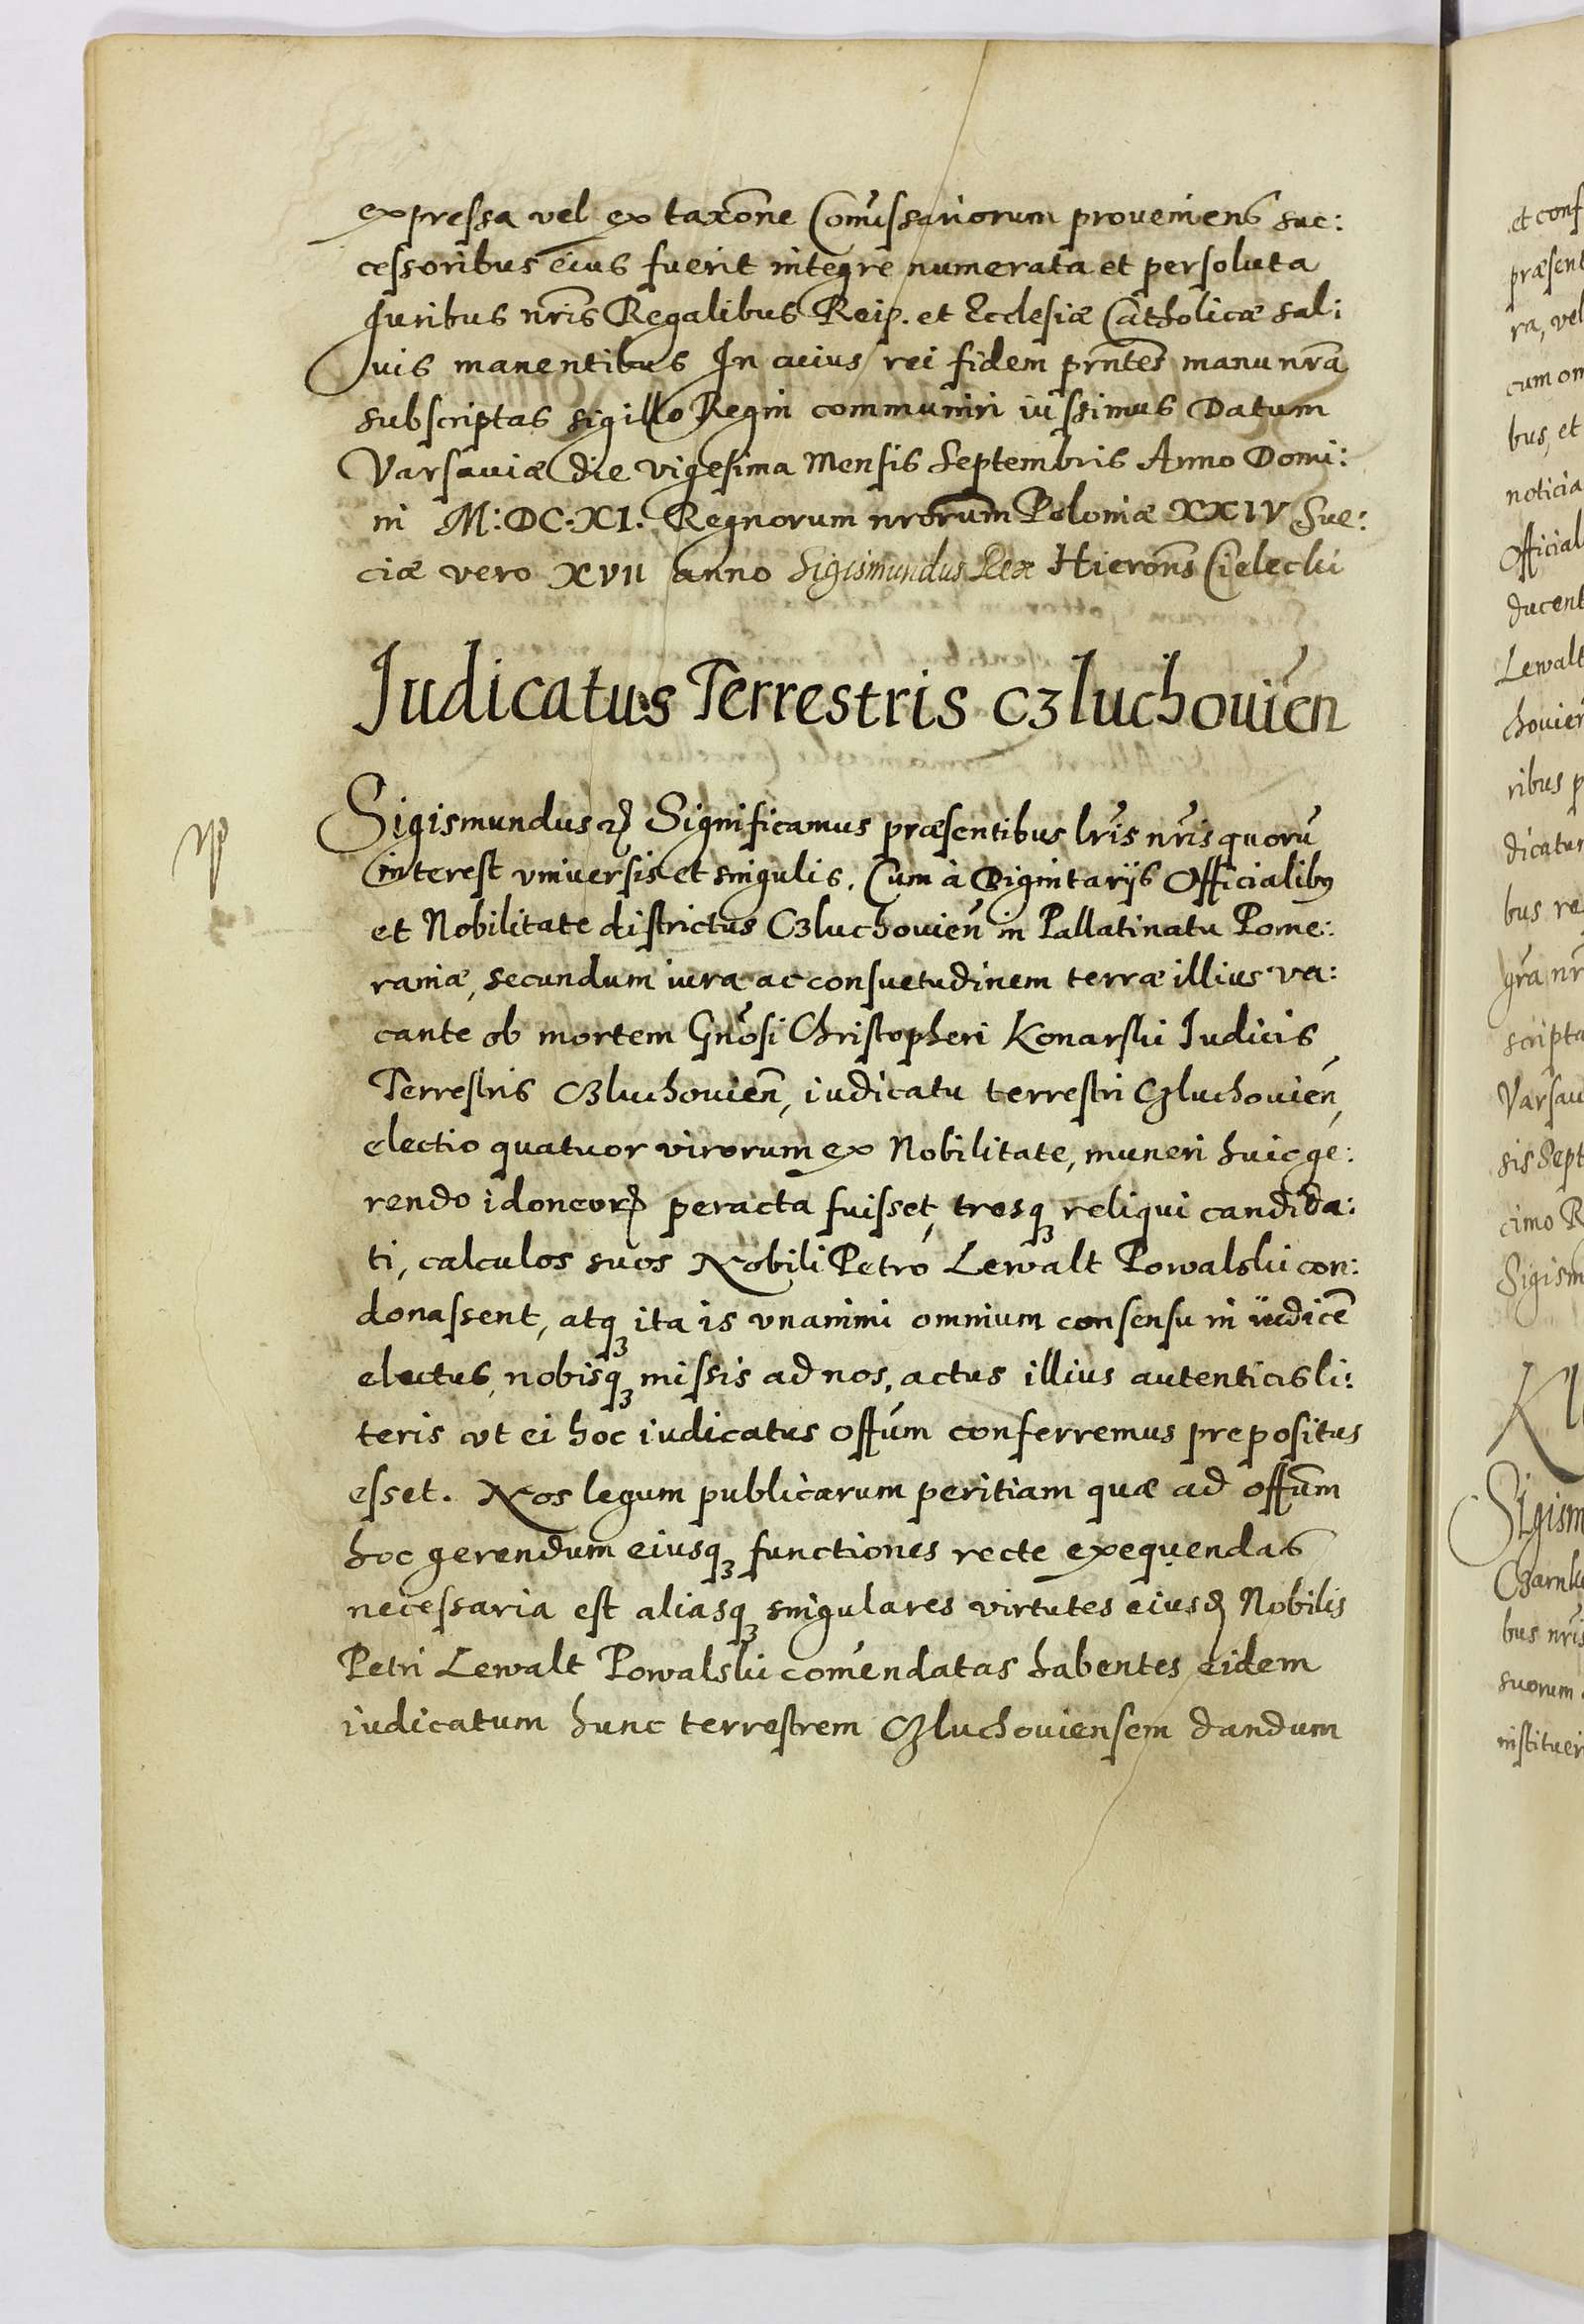 expressa vel ex taxōne Com̄issariorum proveniens suc:
cessoribus eius fuerit integre numerata et persoluta
Iuribus nr̄is Regalibus Reip. et Ecclesiæ Catholicæ sal:
uis manentibus In cuius rei fidem prn̄tes manu nr̄a
subscriptas sigillo Regni communiri iussimus Datum
Varsauiæ die vigesima Mensis Septembris Anno Domi:
ni M: DC: XI. Regnorum nrōrum Poloniæ XXIV Sue:
ciæ vero XVII anno Sigismundus Rex Hierōns Cielecki
Iudicatus Terrestris Czluchouień
Sigismundus ꝛ Significamus præsentibus lr̄is nr̄is quorū
interest vniuersis et singulis. Cum à Dignitarijs Officialibꝰ
et Nobilitate districtus Czluchouień in Pallatinatu Pome:
raniæ, secundum iura ac consuetudinem terræ illius va:
cante ob mortem Gnōsi Christopheri Konarski Iudicis
Terrestris Czluchouien̄, iudicatu terrestri Czluchouień,
electio quatuor virorum ex Nobilitate, muneri huic ge:
rendo idoneorꝝ peracta fuisset, tresqꝫ reliqui candida:
ti, calculos suos Nobili Petro Lewalt Powalski con:
donassent, atqꝫ ita is vnanimi omnium consensu in iudicē
electus, nobisqꝫ missis ad nos, actus illius autenticis li:
teris vt ei hoc iudicatus offūm conferremus prepositus
esset. Nos legum publicarum peritiam quæ ad offūm
hoc gerendum eiusqꝫ functiones recte exequendas
necessaria est aliasqꝫ singulares virtutes eiusꝺ Nobilis
Petri Lewalt Powalski com̄endatas habentes eidem
iudicatum hunc terrestrem Czluchouiensem dandum
et conf
præsent
ra, vel
cum om
bus, et
noticia
Official
ducent
Lewalt
chouień
ribus p
dicatum
bus re
gr̄a nr̄
scripta
Varsau
sis Sept
cimo R
Sigism
Sigism
Czarnk
bus nr̄is
suorum
instituer